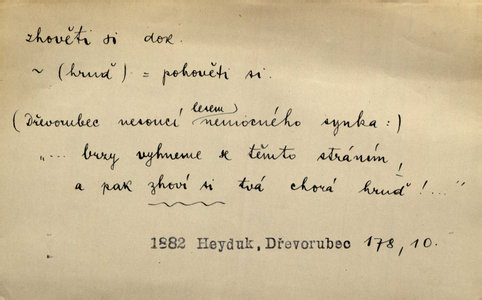 zhověti si dok.
~ (hruď) = pohověti si.
(Dřevorubec nesoucí lesem nemocného synka:)
"... brzy vyhneme se těmto stráním,
a pak zhoví si tvá chorá hruď!..."
1882 Heyduk, Dřevorubec 178, 10.